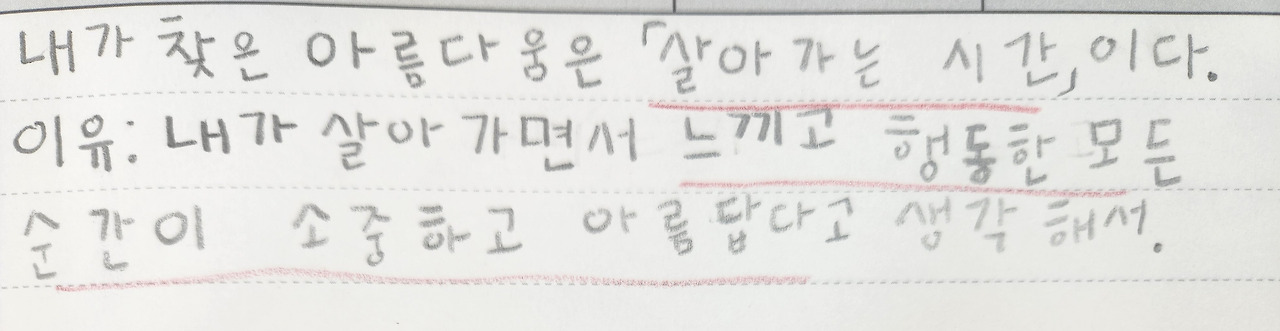 내가 찾은 아름다움은 「살아가는 시간」이다.
이유: 내가 살아가면서 느끼고 행동한 모든
순간이 소중하고 아름답다고 생각해서.